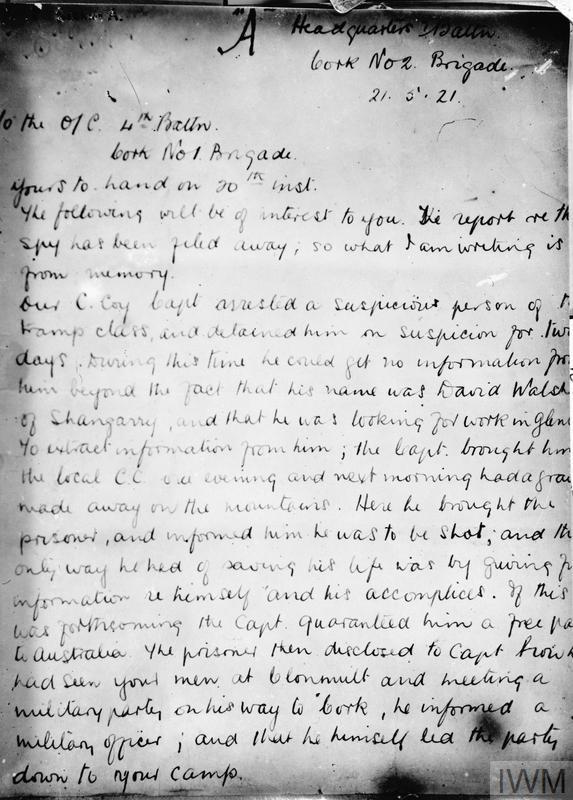 "A"
Headquarters Battn.
Cork No 2. Brigade.
21. 5. 21.
To the O/C. 4th Battn.
Cork No 1. Brigade.
Yours to hand on 20th inst.
The following will be of interest to you. The report re th
spy has been filed away; so what I am writing is
from memory.
Our C. Coy Capt arrested a suspicious person of t
tramp class, and detained him on suspicion for two
days. During this time he could get no information fro
him beyond the fact that his name was David Walsh
of Shangarry, and that he was looking for work in Glen
To extract information from him; the Capt. brought him
the local C.C. one evening and next morning had a grav
made away on the mountains. Here he brought the
prisoner, and informed him he was to be shot; and th
only way he had of saving his life was by giving f
information re himself and his accomplices. If this
was forthcoming the Capt. guaranteed him a free pa
to Australia. The prisoner then disclosed to Capt how h
had seen your men at Clonmult and meeting a
military party on his way to Cork, he informed a
military officer; and that he himself led the party
down to your camp.
IWM